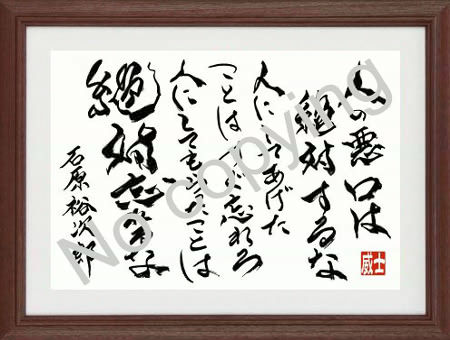 人の悪口は
絶対するな
人にしてあげた
ことはすぐ忘れろ
人にしてもらったことは
絶対忘れるな
石原裕次郎
士威
No copying